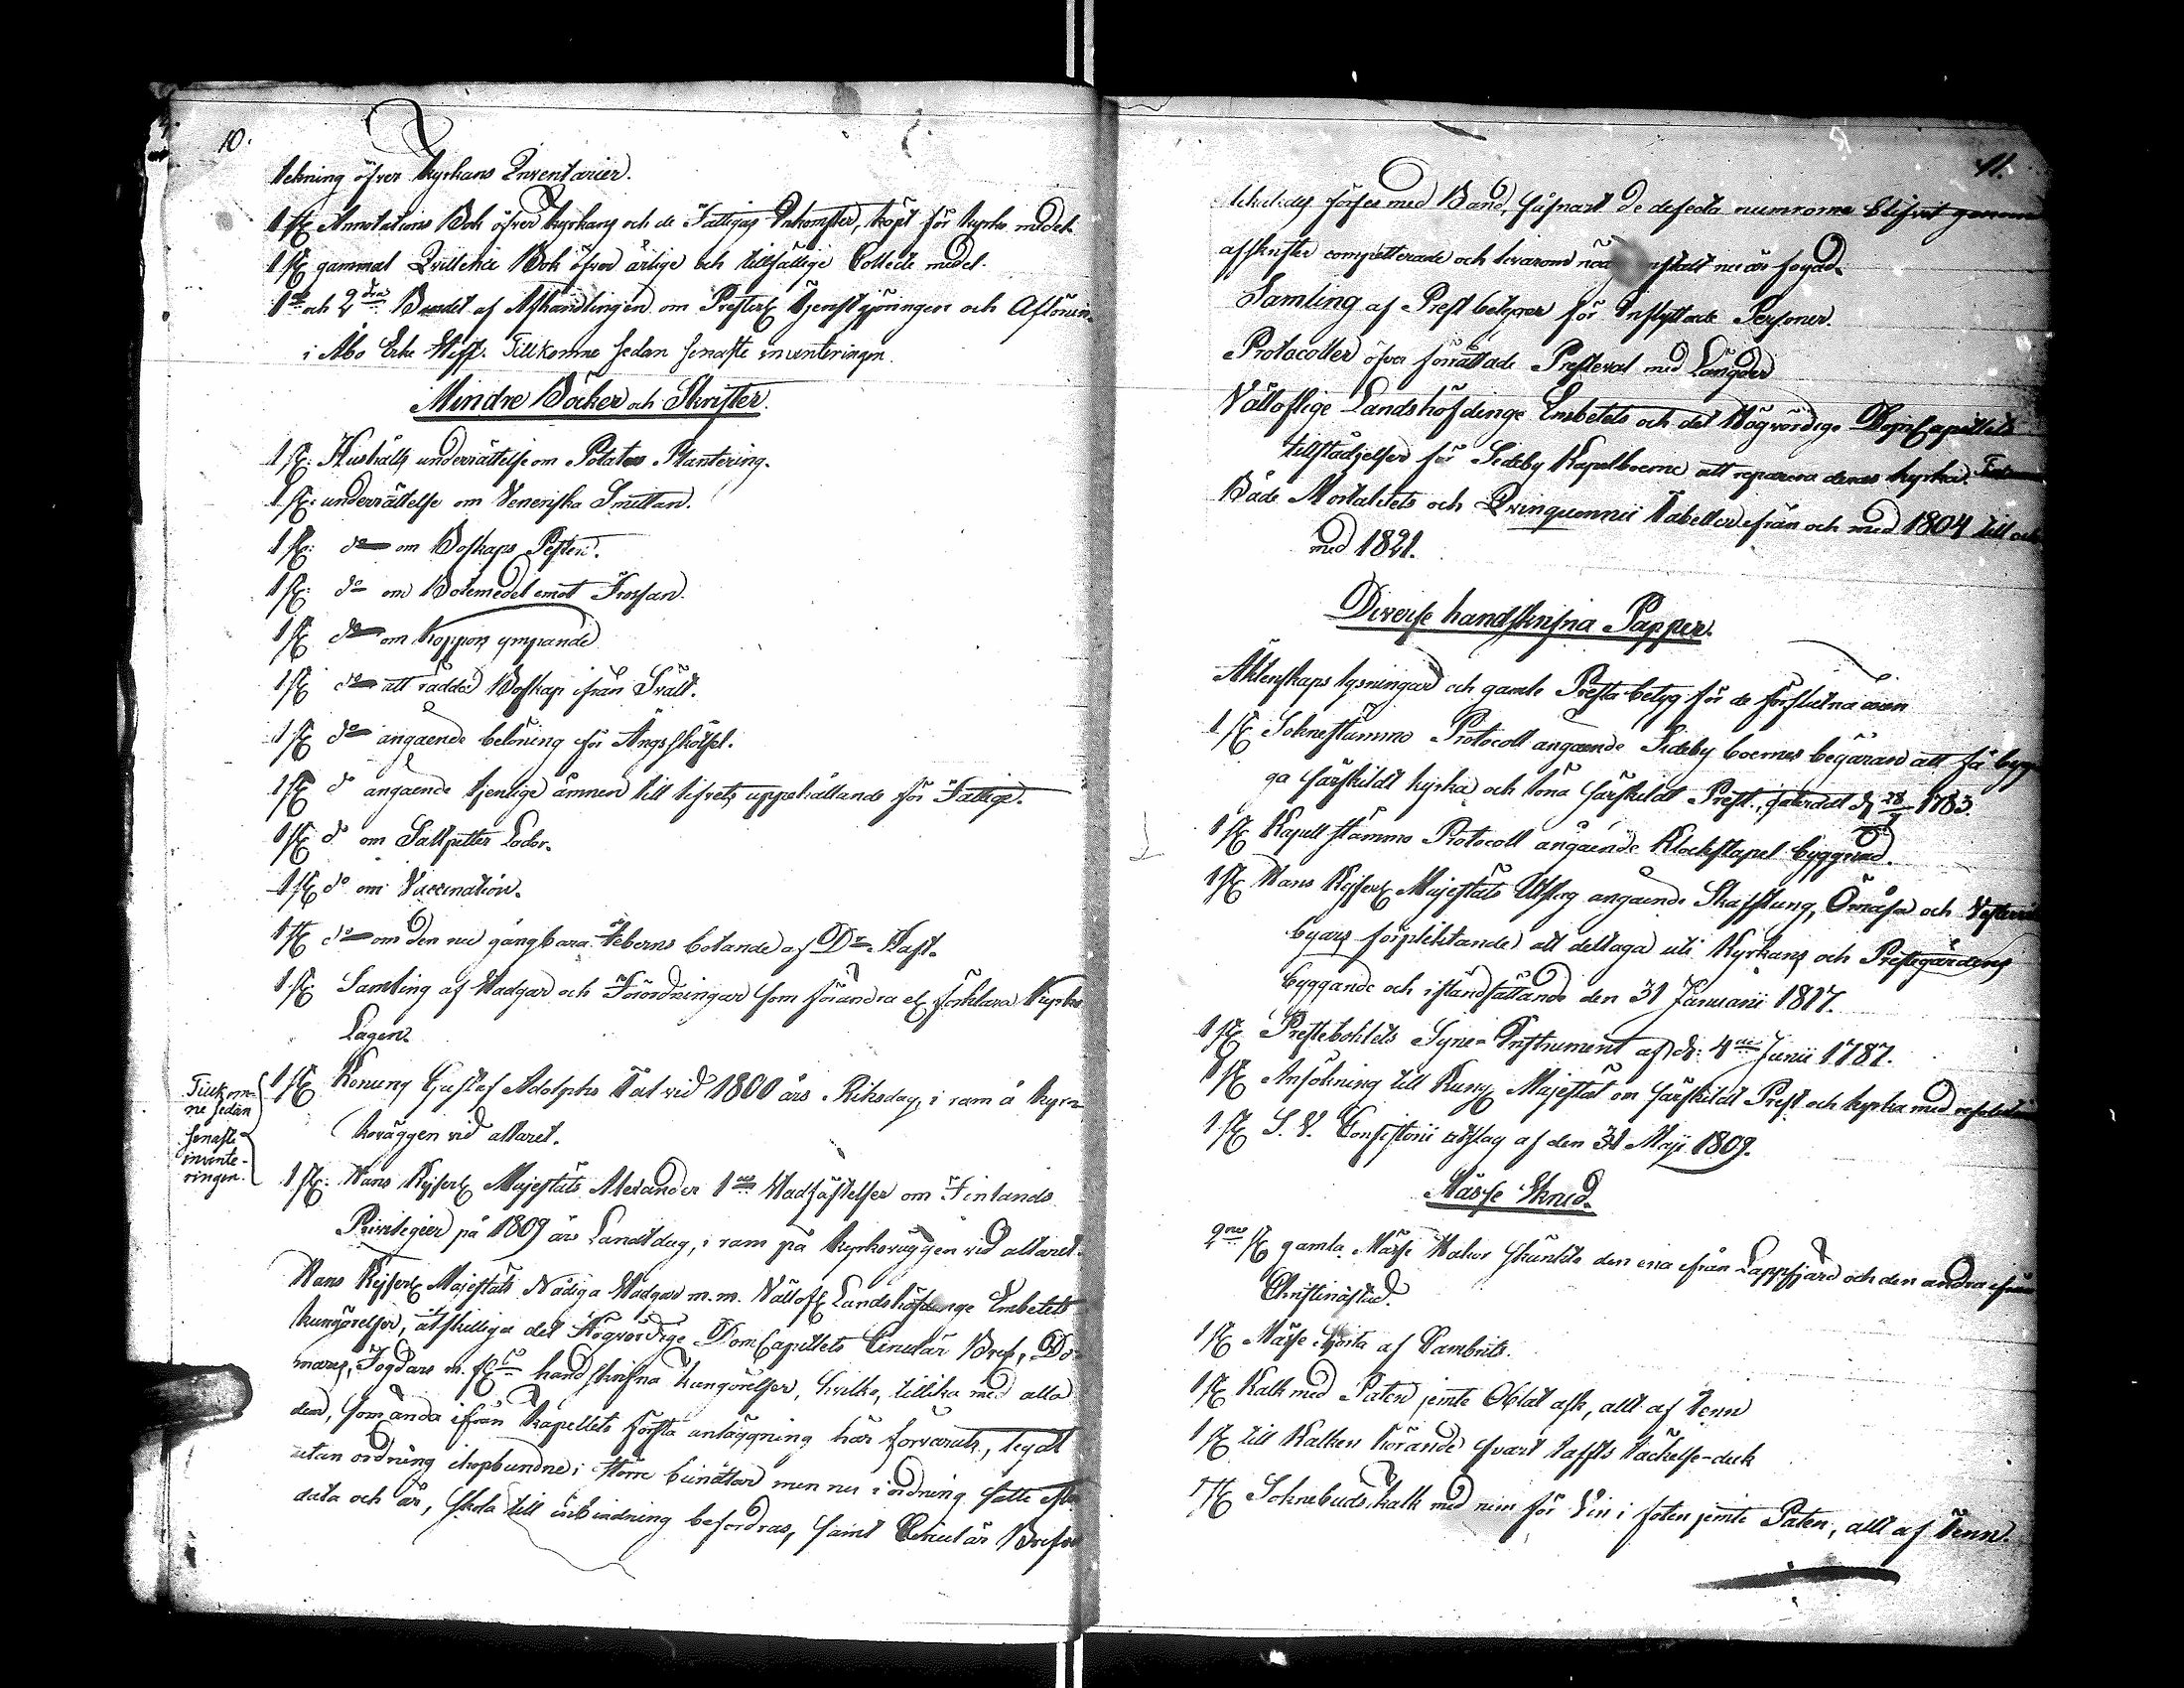 10.
tekning öfver Kyrkans Inventarier.
1 st. Annotations Bok öfver Kyrkans och de Fattigas Inkomster, köpt för Kyrko medel.
1 st. gammal Qvittence Bok öfver årlige och tillfällige Collecte medel.
1sta och 2dra Bandet af Afhandlingen om Presterl. Tjenstgjöringen och Aflönin.
i Åbo Erke Stift. Tillkomne sedan senaste inventeringen.
Mindre Böcker och Skrifter.
1 st. Hushålls underrättelse om Potates Plantering.
1 st. underrättelse om Veneriska Smittan.
1 st. do om Boskaps Pesten.
1 st. do om Botemedel emot Frossan.
1 st. do om Koppors ympande
1 st. do att rädda Boskap ifrån Svält.
1 st. do angående belöning för Ängsskötsel.
1 st. do angående tjenlige ämnen till lifvets uppehållande för Fattige.
1 st. do om Saltpetter Lador.
1 st. do om Vaccination.
1 st. do om den nu gångbara Feberns botande af Dr. Haft.
1 st. Samling af Stadgar och Förordningar som förändra el. förklara Kyrko
Lagen.
Tillkom-
ne sedan
senaste
invente-
ringen.
1 st. Konung Gustaf Adolphs Tal vid 1800 års Riksdag, i ram å Kyr-
koväggen vid altaret.
1 st. Hans Kejserl. Majestäts Alexander 1stes Stadfästelser om Finlands
Privilegier på 1809 års Landtdag, i ram på Kyrkoväggen vid altaret.
Hans Kejserl. Majestäts Nådiga Stadgar m.m. Vällofl. Landshöfdinge Embetets
kungörelser, åtskilliga det Högvördige DomCapitlets Circulär Bref, Do-
mares, Fogdars m. fl. handskrifna kungörelser, hvilka, tillika med alla
dem, som ända ifrån Kapellets första anläggning här förvarats, legat
utan ordning ihopbundne i större buntar men nu i ordning satte efter
data och år, skola till inbindning befordras, samt Circulär Brefven
11.
förses med Band, såsnart de defecta numrorne blifvit genom
affskrifter completterade och hvarom nu är fogad.
Samling af Prest betyg för Inflyttade Personer.
Protocoller öfver förrättade Presteval med Längder
Vällofliga Landshöfdinge Embetets och det Högvördige DomCapitlets
tillstådjelser för Sideby Kapelboerne att reparera deras kyrka.
Både Mortalitets och Qvinquennii Tabeller ifrån och med 1804 till och
med 1821.
Diverse handskrifna Papper.
Äktenskaps lysningar och gamle Presta betyg för de förflutna åren
1 st. Sokne stämmo Protocoll angående Sideby boernes begäran att få byg-
ga särskildt kyrka och löna särskildt Prest, dateradt d. 1783.
1 st. Kapell stämmo Protocoll angående Klockstapel byggnad.
1 st. Hans Kejserl. Majestäts Utslag angående Skaftung, Ömåsa och
byars förpliktande att deltaga uti Kyrkans och Prestgårdens
byggande och iståndsättande den 31 Januarii 1817.
1 st. Prestebohlets Syne-Instrument af d. 4de Junii 1787.
1 st. Ansökning till Kungl. Majestät om särskildt Prest och kyrka med resolution
1 st. S. V. Consistorii utslag af den 31 Maji 1809.
Mässe Skrud.
2ne st. gamla Mässe Hakar skänkte den ena ifrån Lappfjärd och den andra ifrån
Christinæstad.
1 st. Mässe Skjorta af Cambrits.
1 st. Kalk med Paten jemte Oblat ask, allt af Tenn
1 st. till Kalken hörande svart taffts täckelse-duk
1 st. Sokne buds kalk med rum för Vin i foten jemte Paten, allt af Tenn.